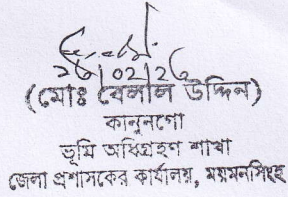 26/02/26
(মোঃ বেলাল উদ্দিন)
কানুনগো
ভূমি অধিগ্রহণ শাখা
জেলা প্রশাসকের কার্যালয়, ময়মনসিংহ